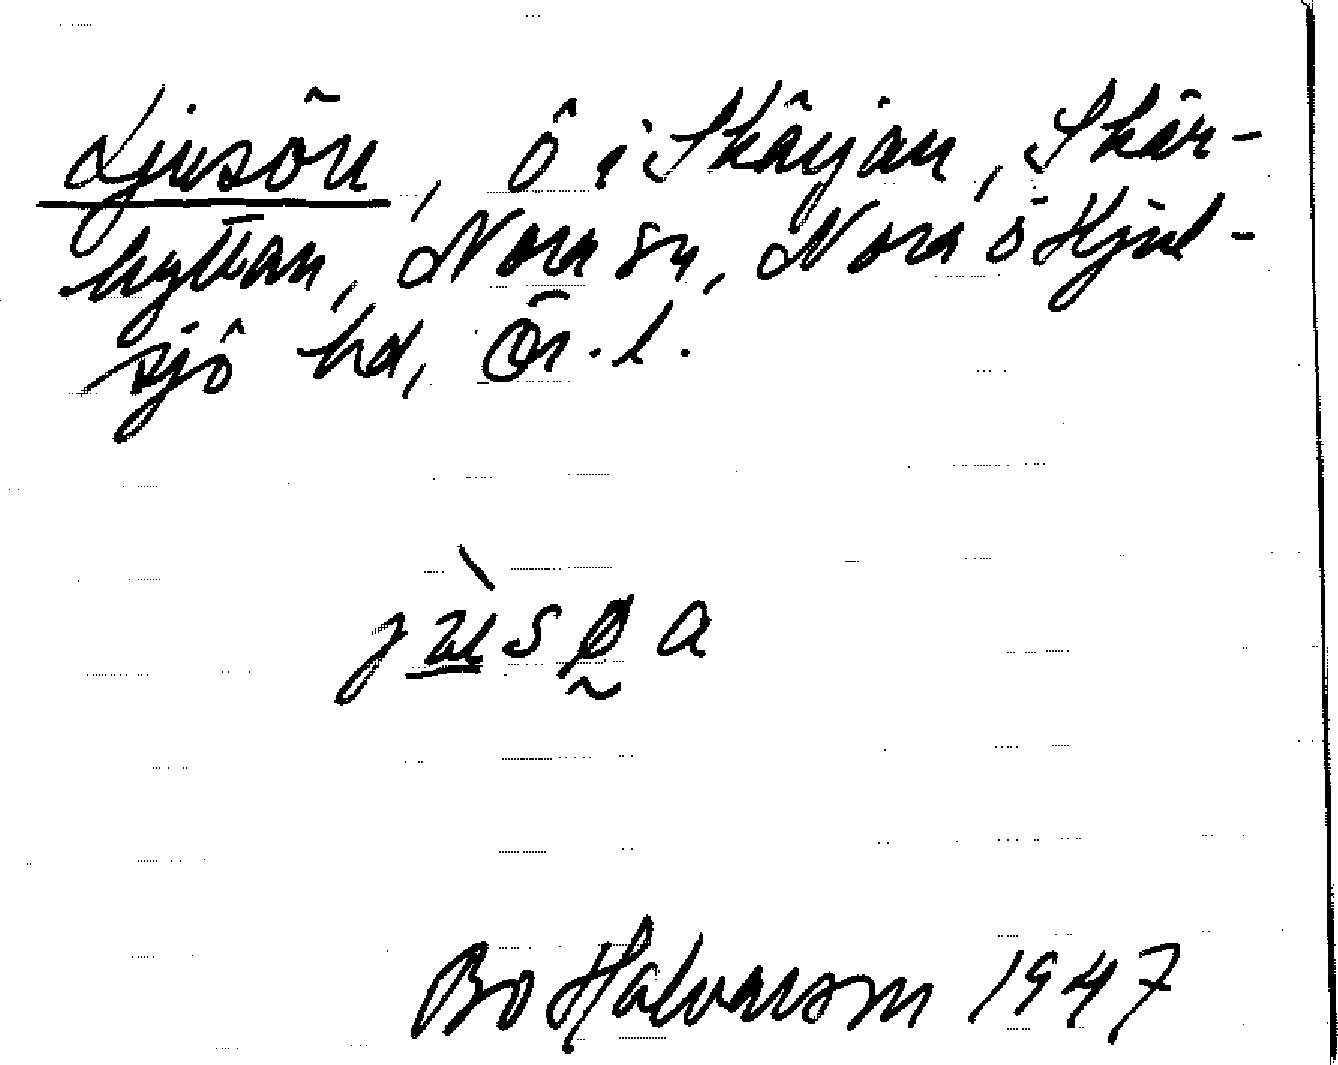 Ljusön, ö i Skärjan, Skär-
hyttan, Nora sn, Nora o Hjul-
sjö hd, Ör. l.
jùsøa
Bo Halvarson 1947